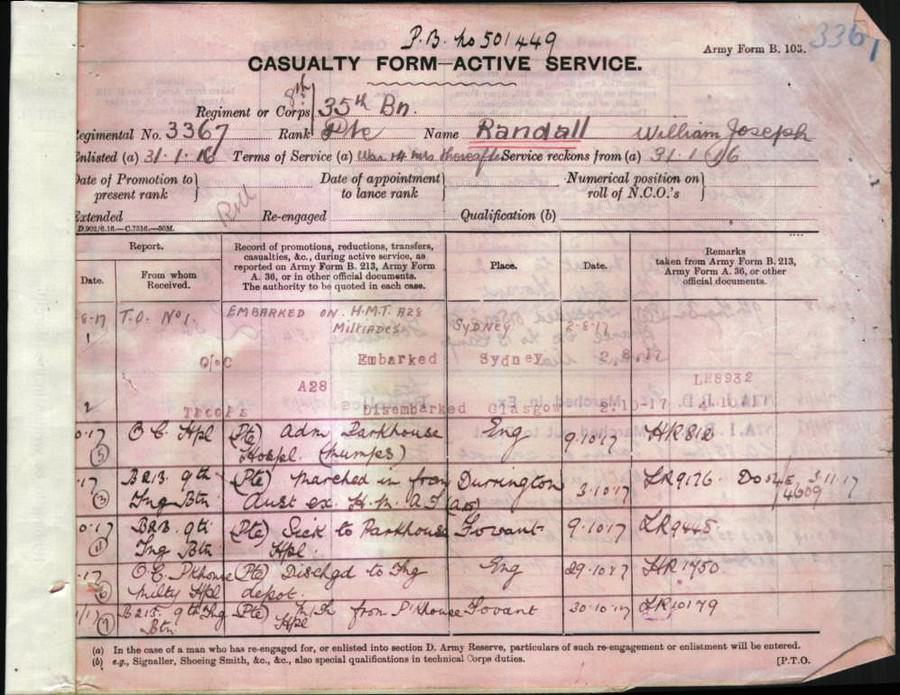 P.B. No 501449
Army Form B. 103.
3367
CASUALTY FORM—ACTIVE SERVICE.
8th
Regiment or Corps 35th Bn.
Regimental No. 3367 Rank Pte Name Randall William Joseph
Enlisted (a) 31.1.16 Terms of Service (a) War & 4 mts thereafter Service reckons from (a) 31.1.16
Date of Promotion to present rank } Date of appointment to lance rank } Numerical position on roll of N.C.O.'s }
Extended Re-engaged Qualification (b)
D.902/6.16.—C.7316.—50M.
Report. Record of promotions, reductions, transfers, casualties, &c., during active service, as reported on Army Form B. 213, Army Form A. 36, or in other official documents. The authority to be quoted in each case. Place. Date. Remarks taken from Army Form B. 213, Army Form A. 36, or other official documents.
Date. From whom Received.
8-17 T.O. No 1. EMBARKED ON H.M.T. A28 MILTIADES SYDNEY 2-8-17
1 O/C Embarked Sydney 2.8.17
A28 LR8932
2 TROOPS Disembarked Glasgow 2.10.17
0.17 O.C. Hpl (Pte) Adm Parkhouse Hospl. (Mumps) Eng 9.10.17 HR818
(5)
17 B213. 9th Tng Btn (Pte) Marched in from Aust ex. Durrington 3.10.17 LR9176 4609 3.11.17
(3)
0.17 B213 9th Tng Btn (Pte) Sick to Parkhouse Hpl. Fovant 9.10.17 LR9445.
17 O.C. Pkhouse Milty Hpl (Pte) Dischgd to Tng depot. Eng 29.10.17 HR1950.
B213. 9th Tng Btn (Pte) M.In from P'khouse Hpl Fovant 30.10.17 LR10179
(7)
(a) In the case of a man who has re-engaged for, or enlisted into section D. Army Reserve, particulars of such re-engagement or enlistment will be entered.
(b) e.g., Signaller, Shoeing Smith, &c., &c., also special qualifications in technical Corps duties. [P.T.O.